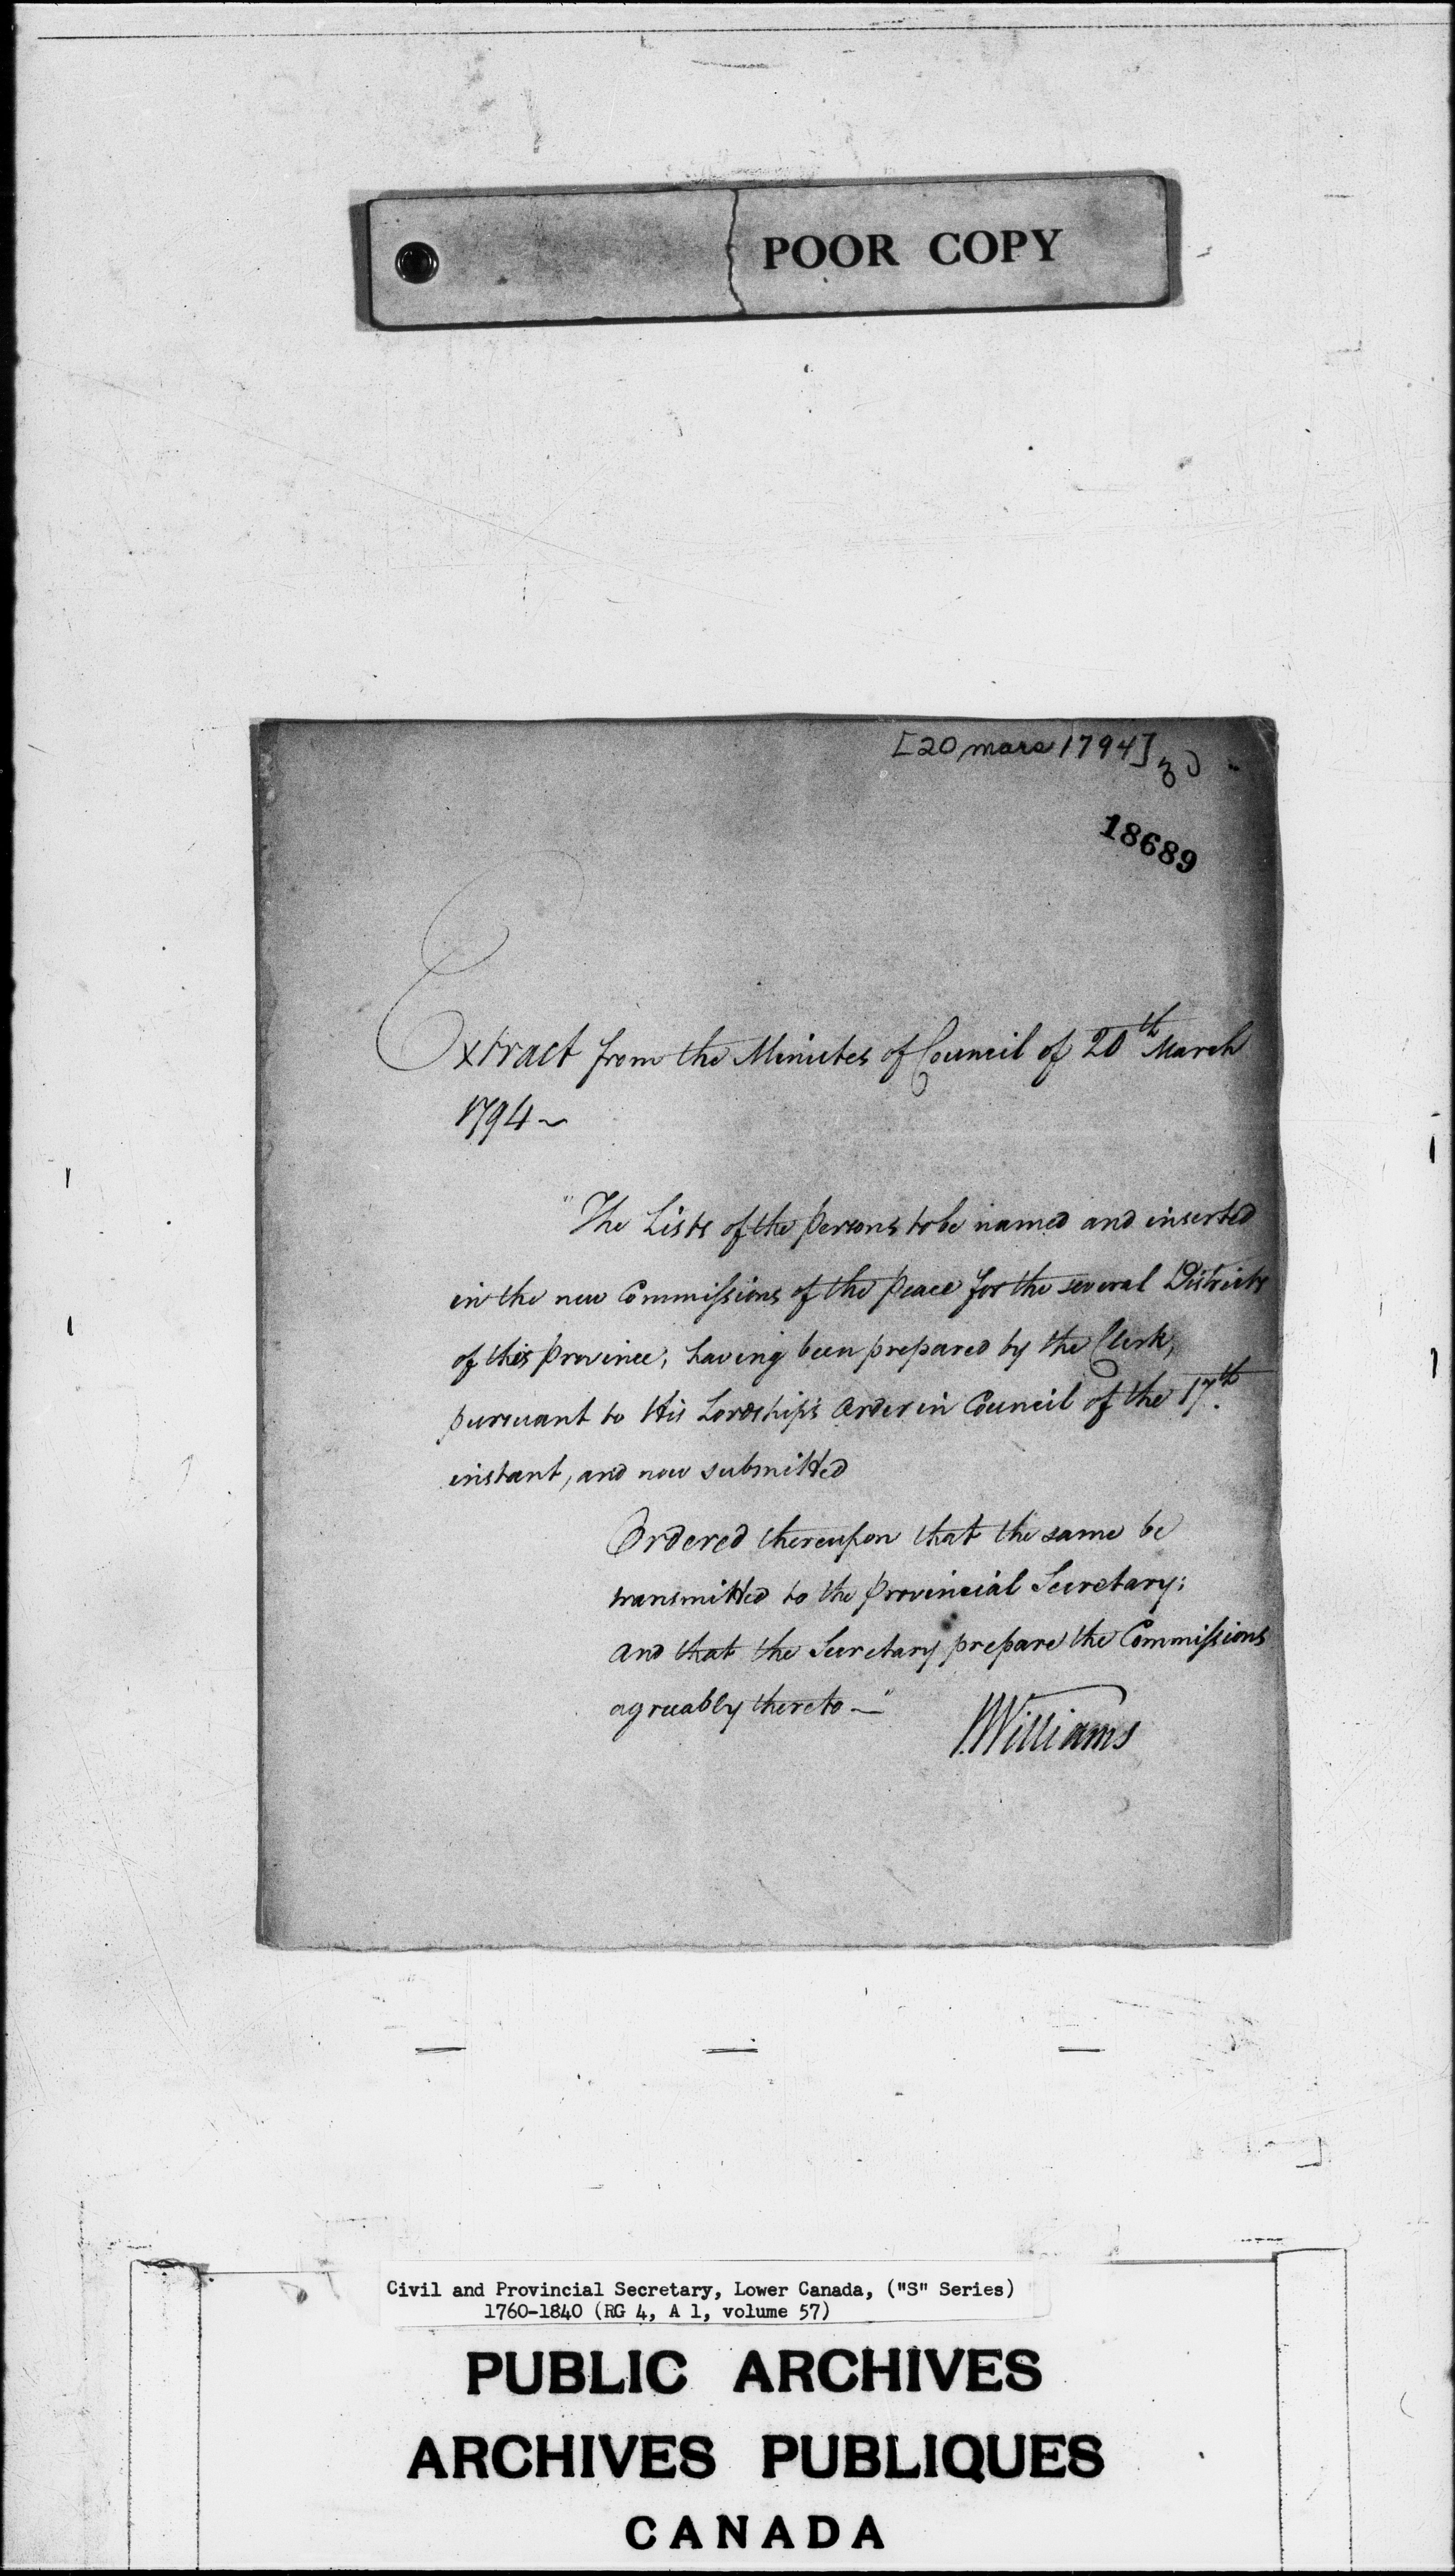 POOR COPY
[20 mars 1794]
18689
Extract from the Minutes of Council of 20th March
1794 ~
"The Lists of the Persons to be named and inserted
in the new Commissions of the Peace for the several Districts
of this Province; having been prepared by the Clerk,
pursuant to His Lordship's Order in Council of the 17th.
instant, and now submitted
Ordered thereupon that the same be
transmitted to the Provincial Secretary;
and that the Secretary prepare the Commissions
agreeably thereto —"
J Williams
Civil and Provincial Secretary, Lower Canada, ("S" Series)
1760-1840 (RG 4, A 1, volume 57)
PUBLIC ARCHIVES
ARCHIVES PUBLIQUES
CANADA